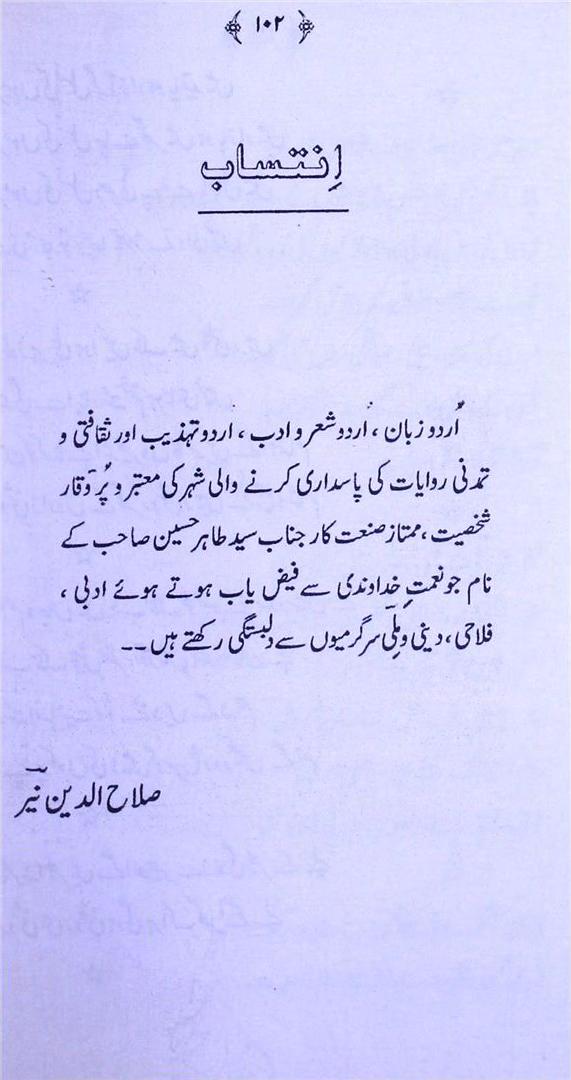 ۱۰۲
اِنتساب
اُردو زبان ، اُردو شعر و ادب ، اردو تہذیب اور ثقافتی و
تمدنی روایات کی پاسداری کرنے والی شہر کی معتبر و پُر وقار
شخصیت ، ممتاز صنعت کار جناب سید طاہر حسین صاحب کے
نام جو نعمتِ خداوندی سے فیض یاب ہوتے ہوئے ادبی ،
فلاحی ، دینی و ملّی سرگرمیوں سے دلبستگی رکھتے ہیں ۔۔
صلاح الدین نیّر